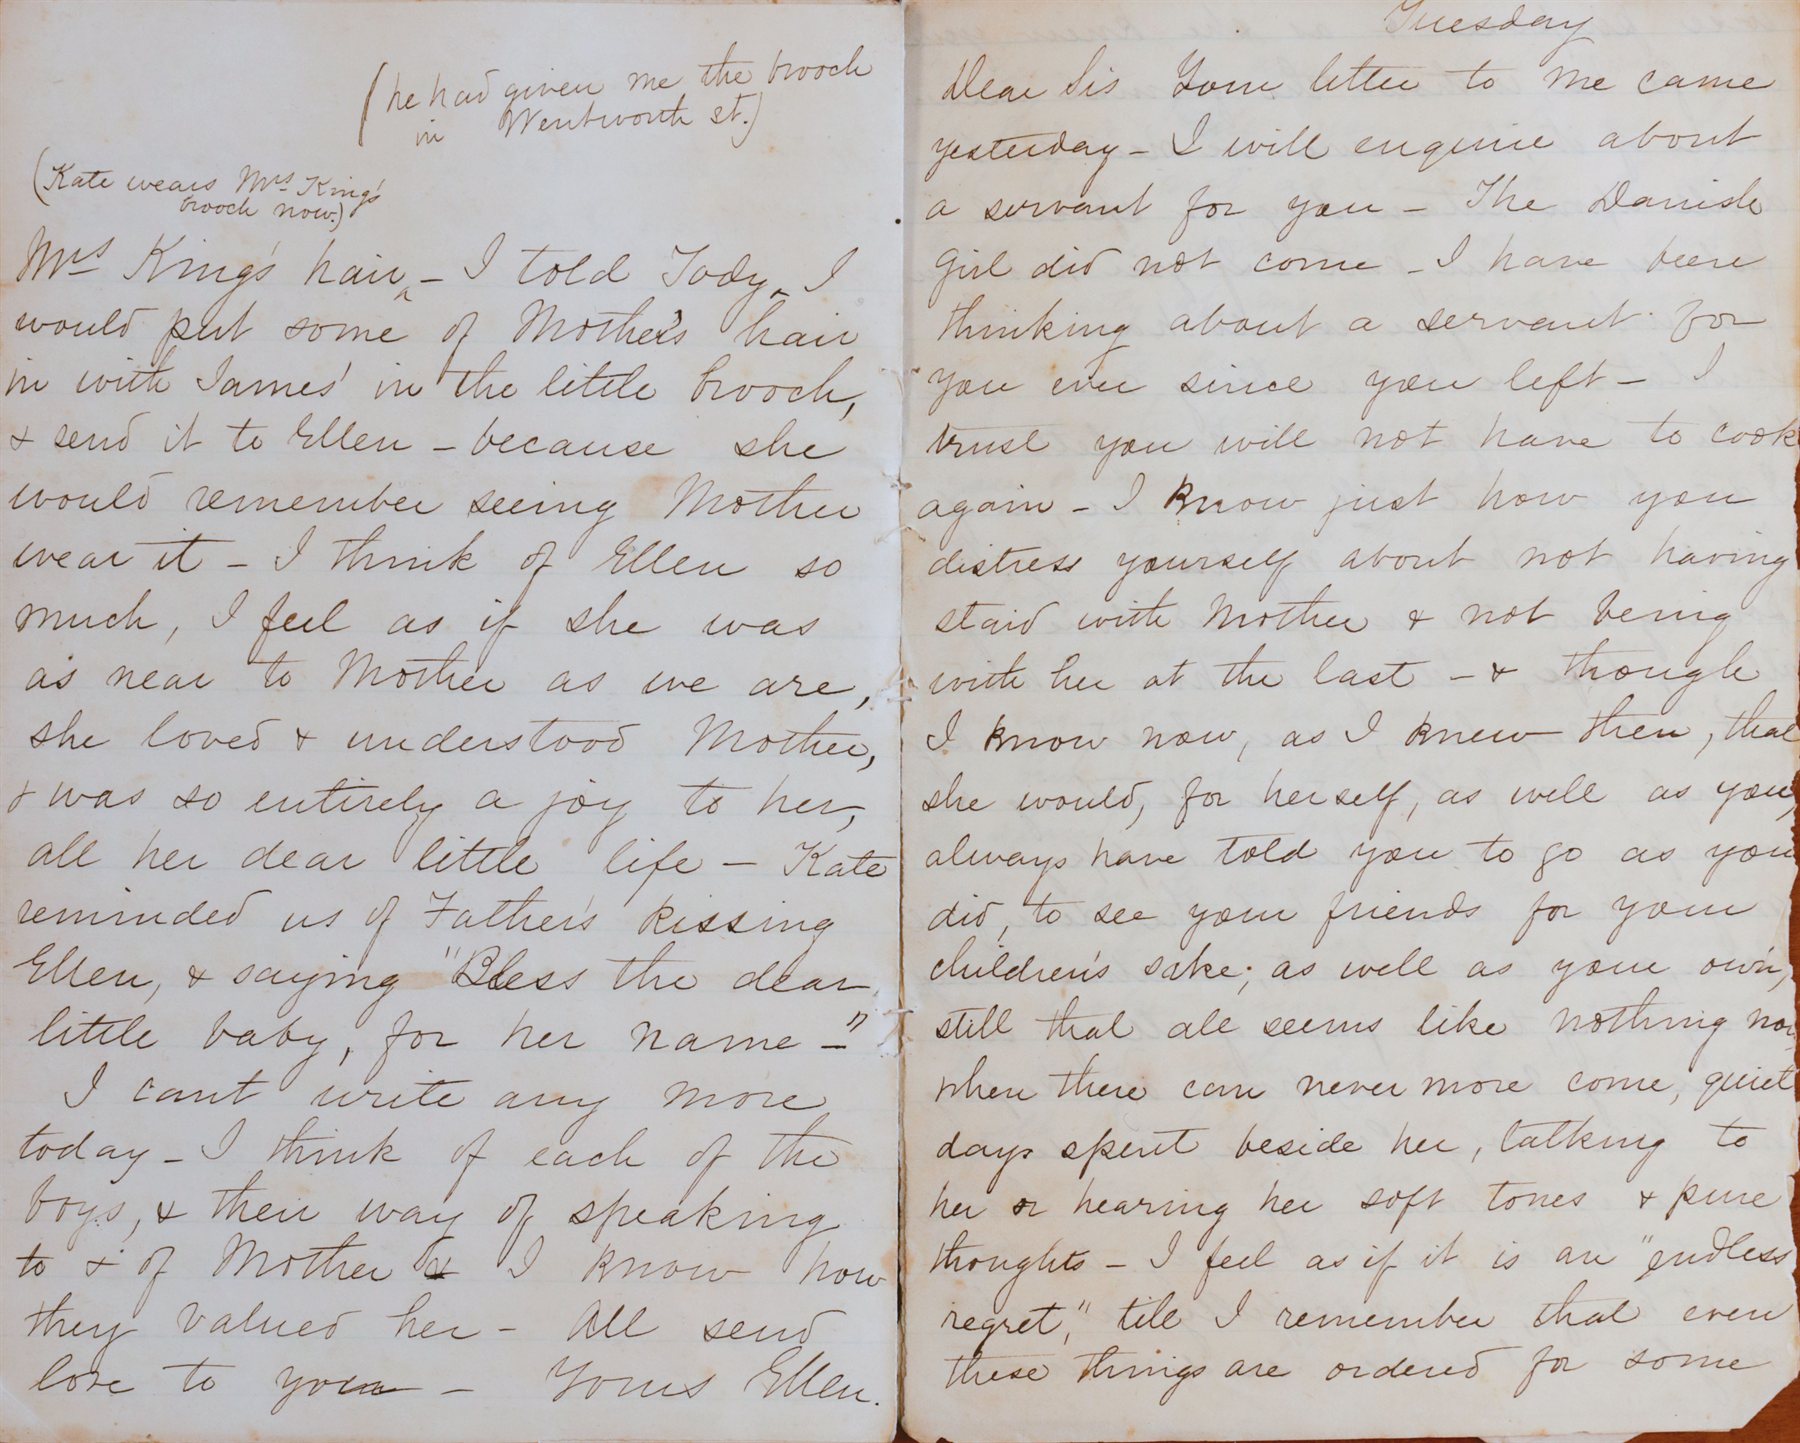 (he had given me the brooch
in Wentworth st.)
(Kate wears Mrs King's
brooch now.)
Mrs King's hair ^ - I told Tody ^ I
would put some of Mother's hair
in with James' in the little brooch,
& send it to Ellen - because she
would remember seeing Mother
wear it - I think of Ellen so
much, I feel as if she was
as near to Mother as we are,
she loved & understood Mother,
& was so entirely a joy to her,
all her dear little life - Kate
reminded us of Father's kissing
Ellen, & saying "Bless the dear
little baby, for her name -"
I cant write any more
today - I think of each of the
boys, & their way of speaking
to & of Mother & I know how
they valued her - All send
love to you - Yours Ellen.
Tuesday
Dear Sis Your letter to me came
yesterday - I will enquire about
a servant for you - The Danish
girl did not come - I have been
thinking about a servant for
you ever since you left - I
trust you will not have to cook
again - I know just how you
distress yourself about not having
staid with Mother & not being
with her at the last - & though
I know now, as I knew then, that
she would, for herself, as well as you,
always have told you to go as you
did, to see your friends for your
children's sake; as well as your own,
still that all seems like nothing now
when there can never more come, quiet
days spent beside her, talking to
her or hearing her soft tones & pure
thoughts - I feel as if it is an "endless
regret," till I remember that even
these things are ordered for some